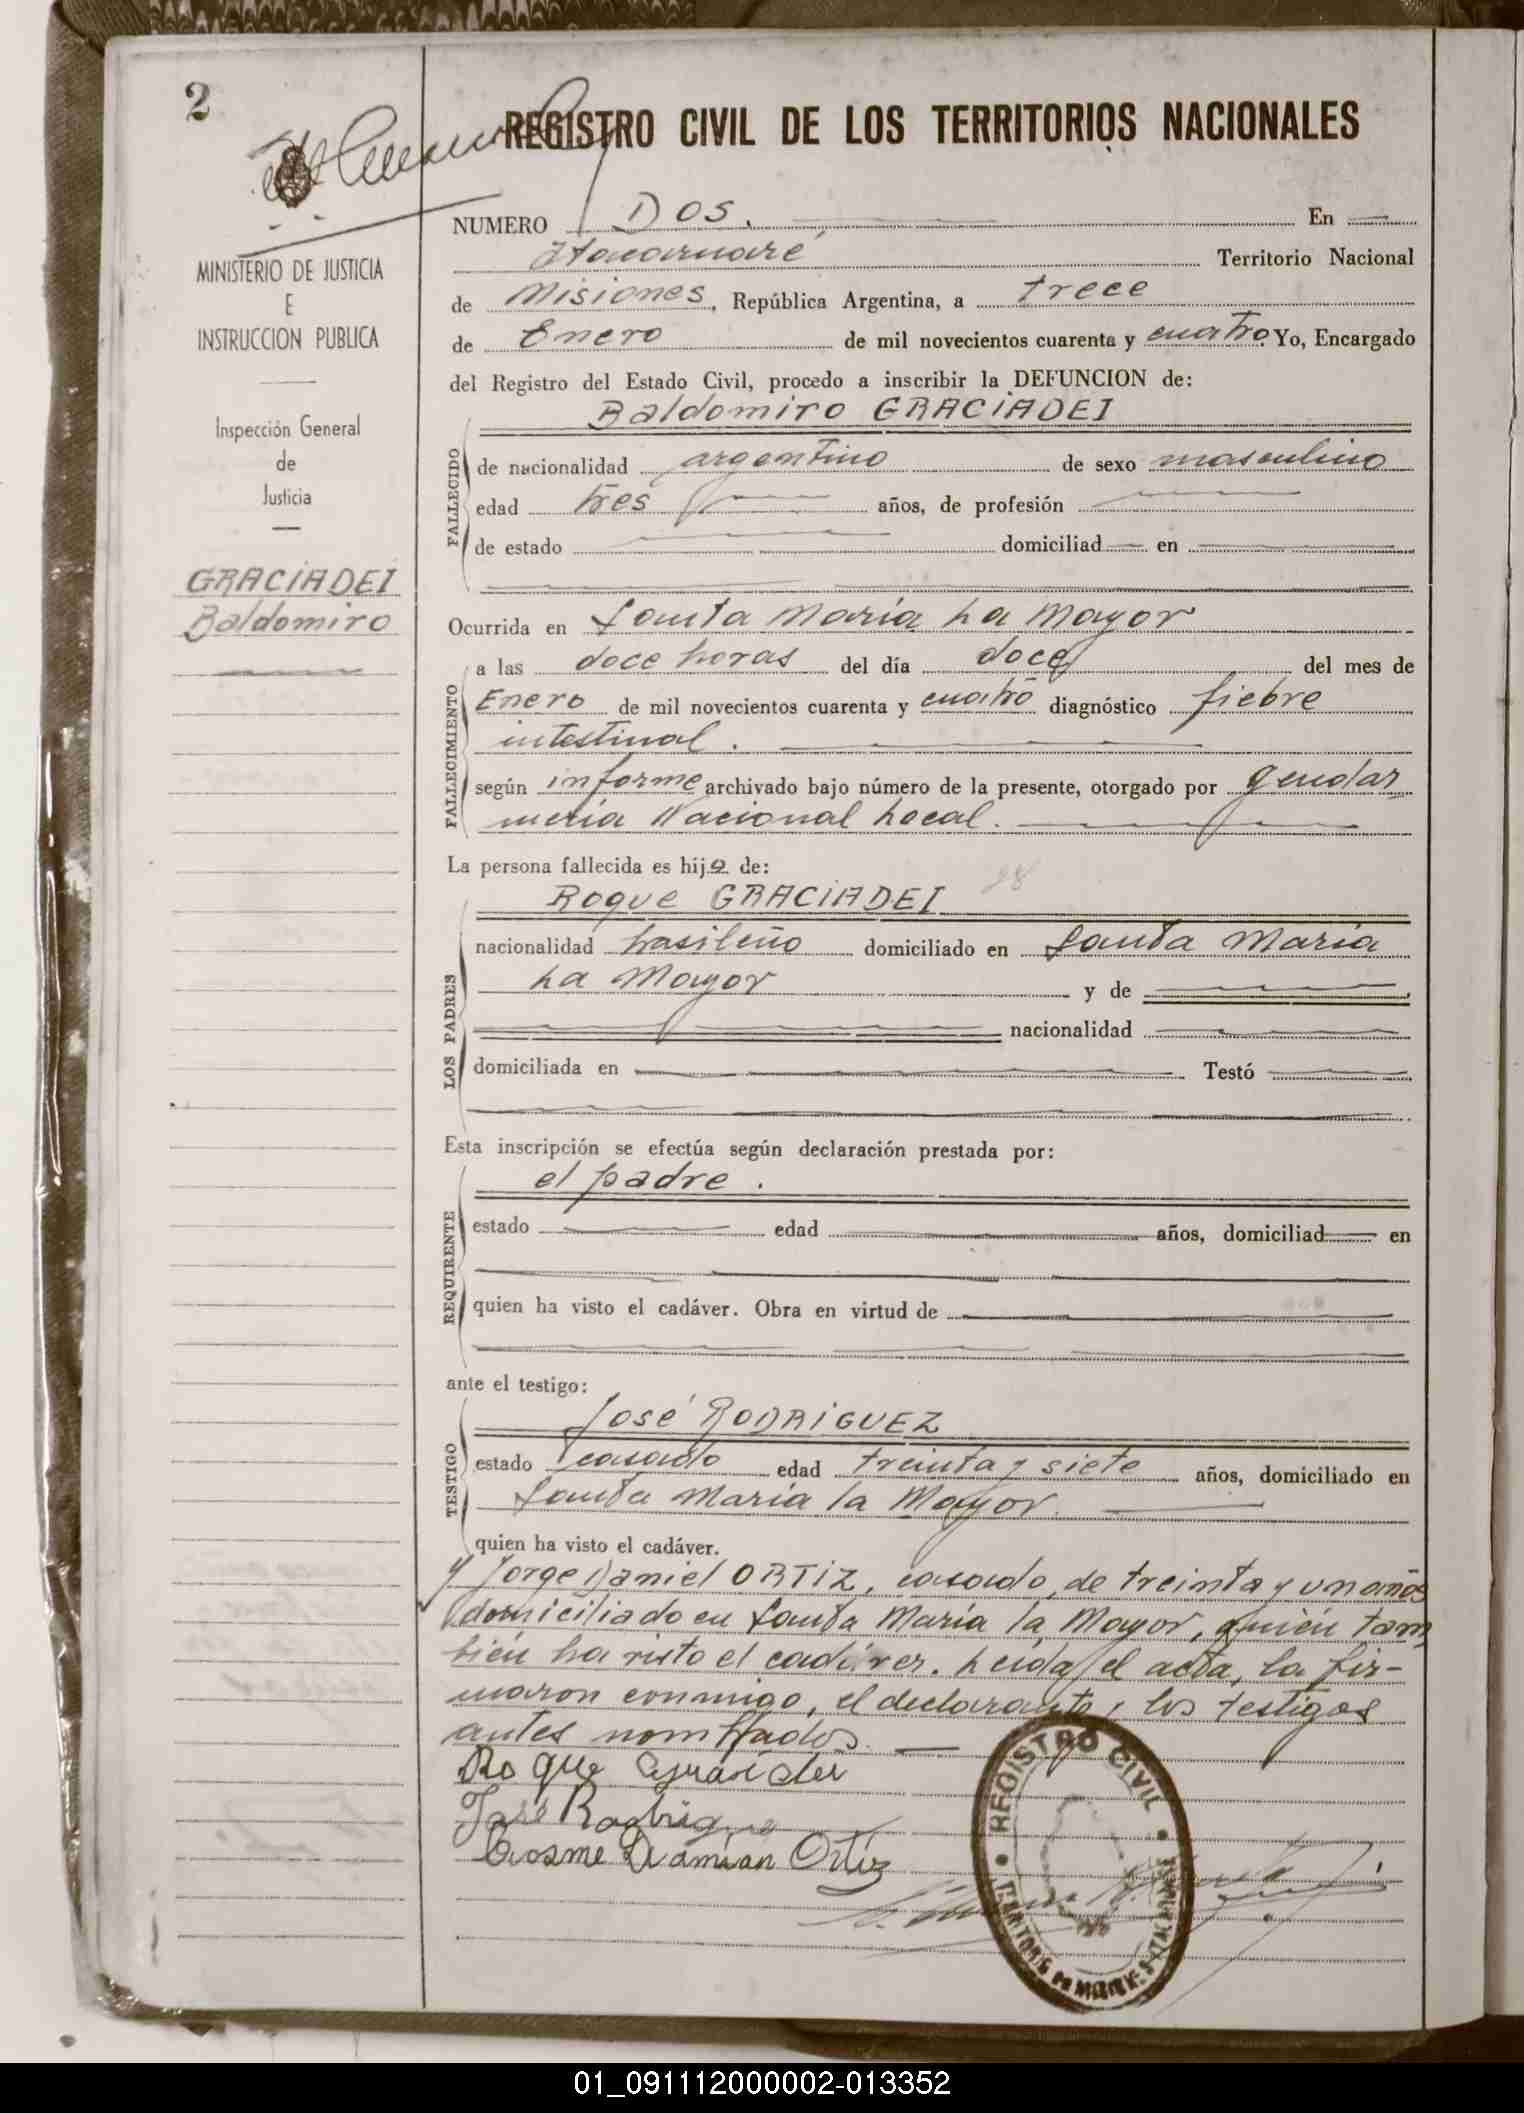 2
REGISTRO CIVIL DE LOS TERRITORIOS NACIONALES
MINISTERIO DE JUSTICIA
E
INSTRUCCION PUBLICA
Inspección General
de
Justicia
GRACIADEI
Baldomiro
NUMERO Dos. En
Itacaruaré Territorio Nacional
de Misiones, República Argentina, a trece
de Enero de mil novecientos cuarenta y cuatro. Yo, Encargado
del Registro del Estado Civil, procedo a inscribir la DEFUNCION de:
Baldomiro GRACIADEI
FALLECIDO
de nacionalidad argentino de sexo masculino
edad tres años, de profesión
de estado domiciliad en
Ocurrida en Santa María La Mayor
FALLECIMIENTO
a las doce horas del día doce del mes de
Enero de mil novecientos cuarenta y cuatro diagnóstico fiebre
intestinal.
según informe archivado bajo número de la presente, otorgado por gendar
mería Nacional Local.
La persona fallecida es hijo de:
Roque GRACIADEI
LOS PADRES
nacionalidad brasileño domiciliado en Santa María
La Mayor y de
nacionalidad
domiciliada en Testó
Esta inscripción se efectúa según declaración prestada por:
el padre.
REQUIRENTE
estado edad años, domiciliad en
quien ha visto el cadáver. Obra en virtud de
ante el testigo:
José RODRIGUEZ
TESTIGO
estado casado edad treinta y siete años, domiciliado en
Santa María la Mayor.
quien ha visto el cadáver.
y Jorge Daniel ORTIZ, casado, de treinta y un años
domiciliado en Santa María la Mayor, quién tam
bién ha visto el cadáver. Leida el acta, la fir-
maron conmigo, el declarante y los testigos
antes nombrados.
Roque
José Rodrigue
Cosme Damian Ortiz
REGISTRO CIVIL
01_091112000002-013352